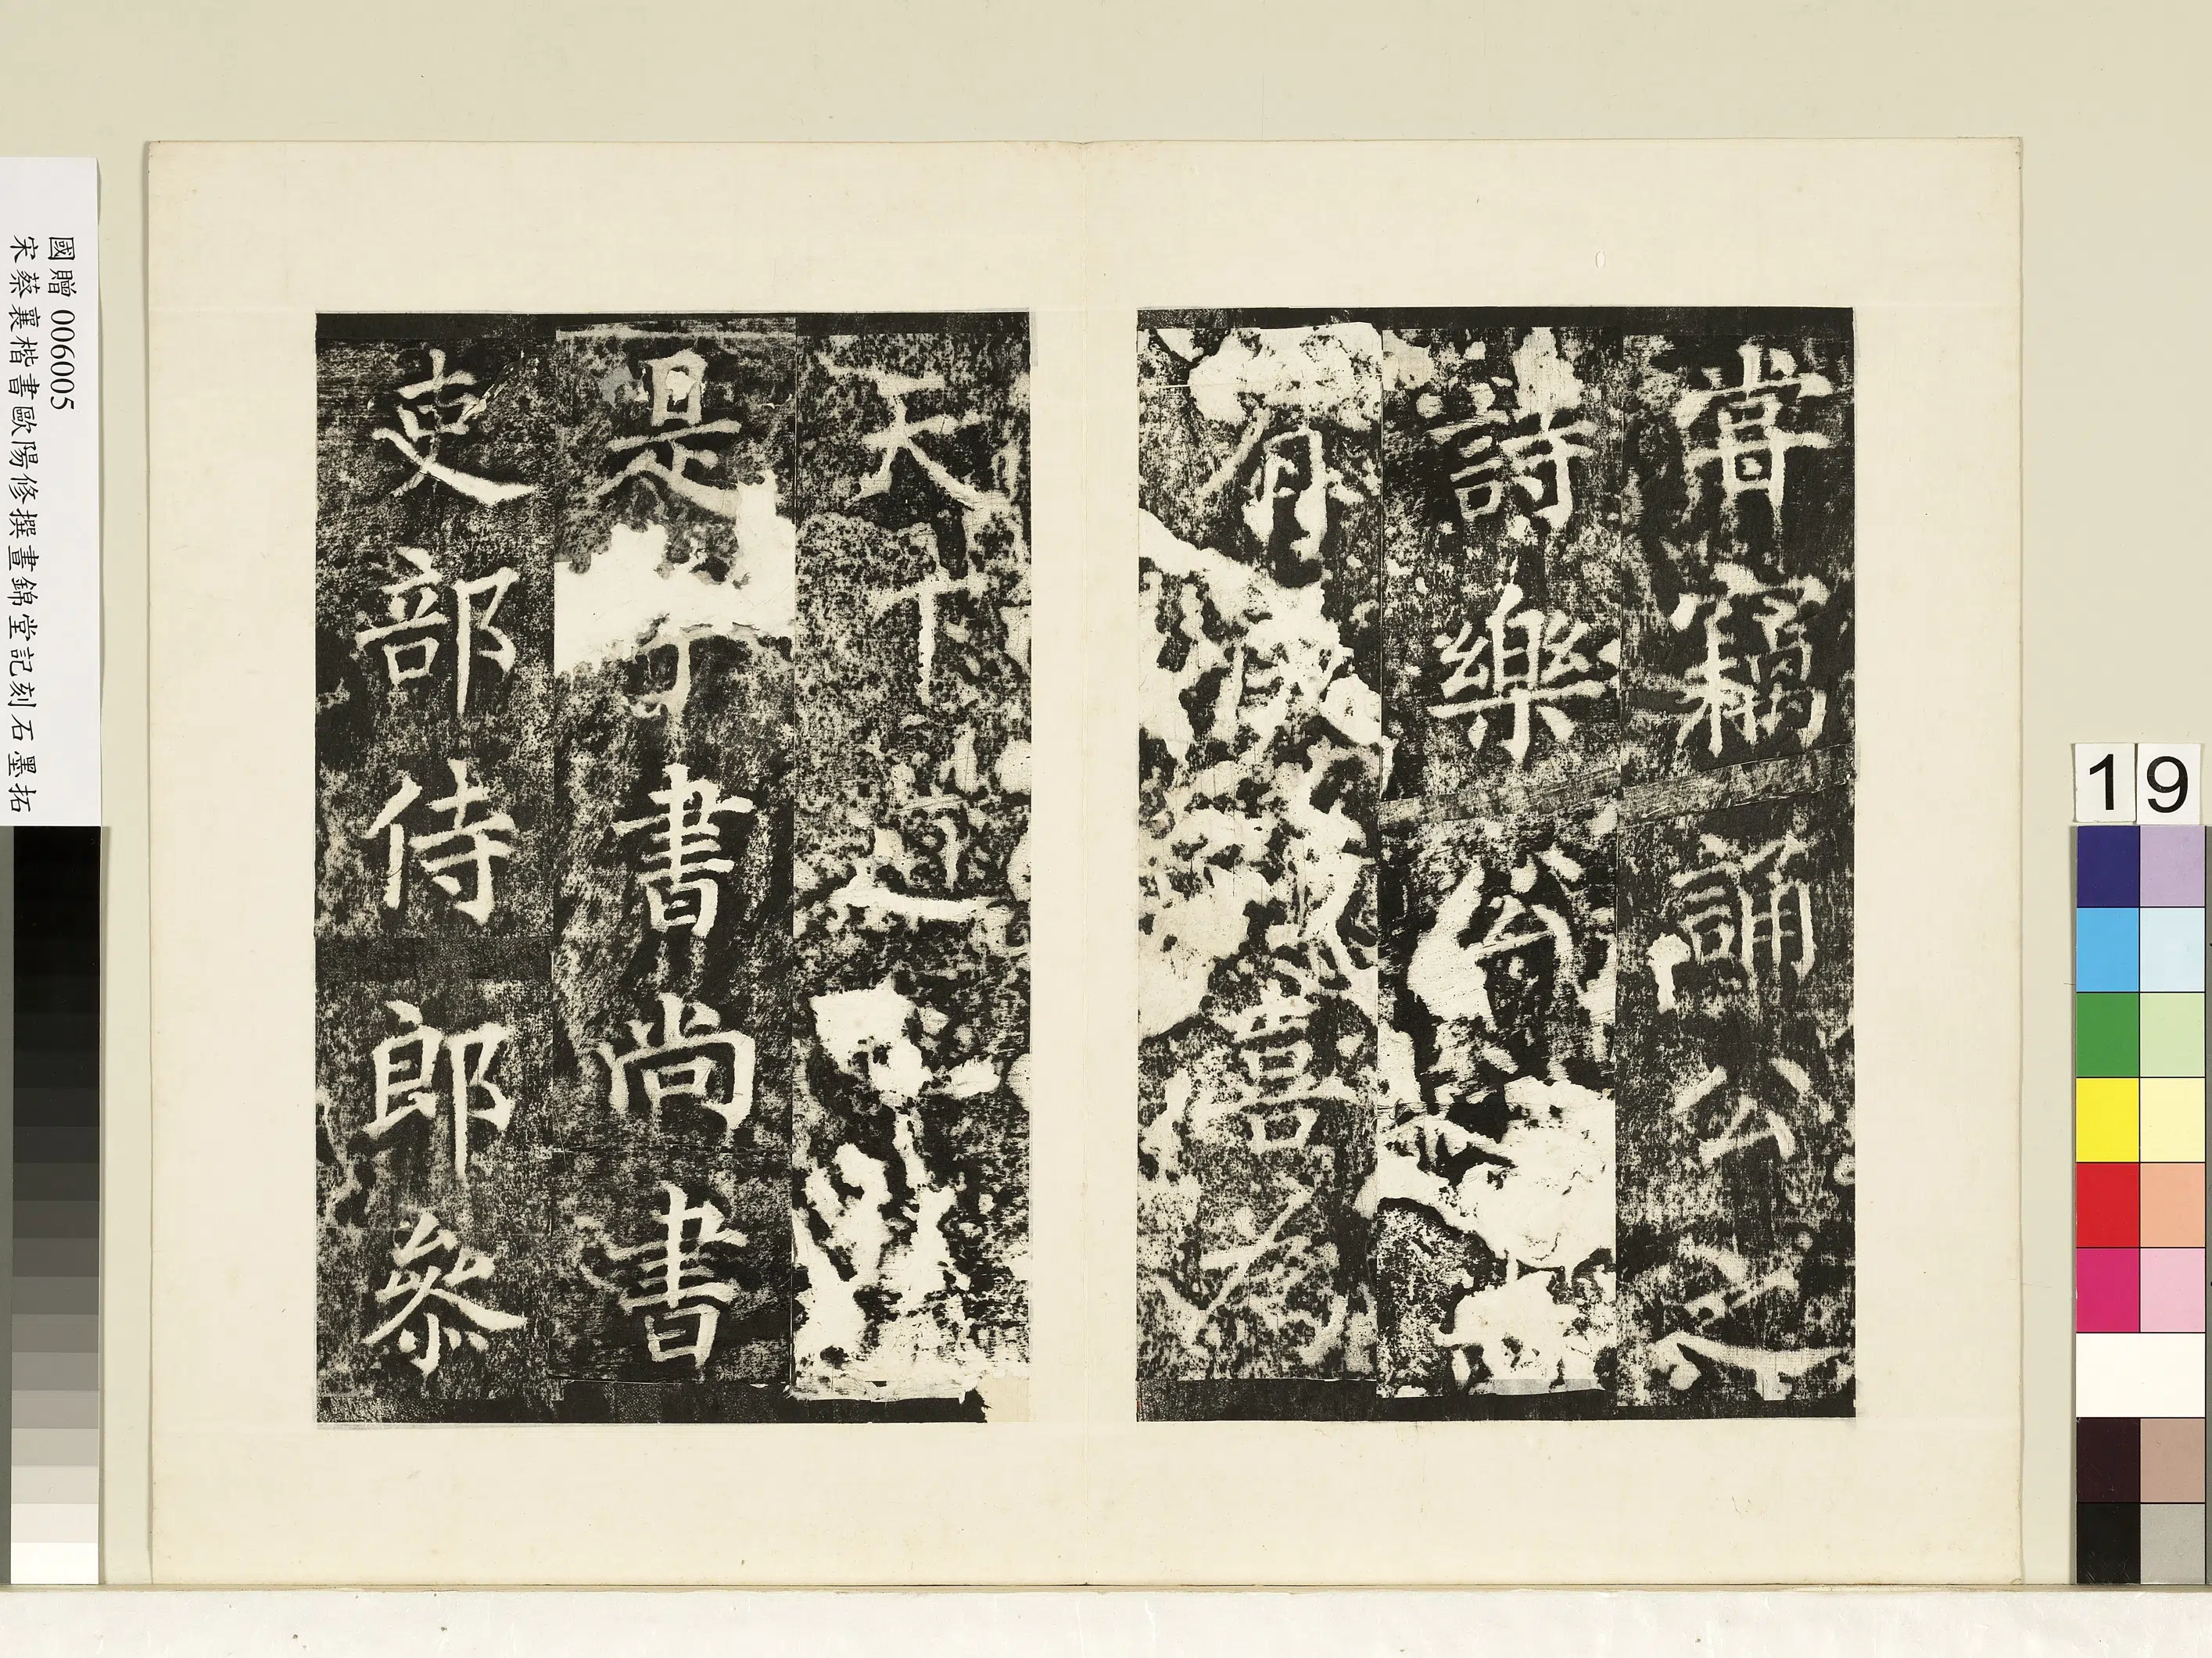 嘗竊誦公之
詩樂公
有成喜為
天下道
是乎書尚書
吏部侍郎參
國贈 006005
宋蔡襄楷書歐陽修撰晝錦堂記刻石墨拓
19